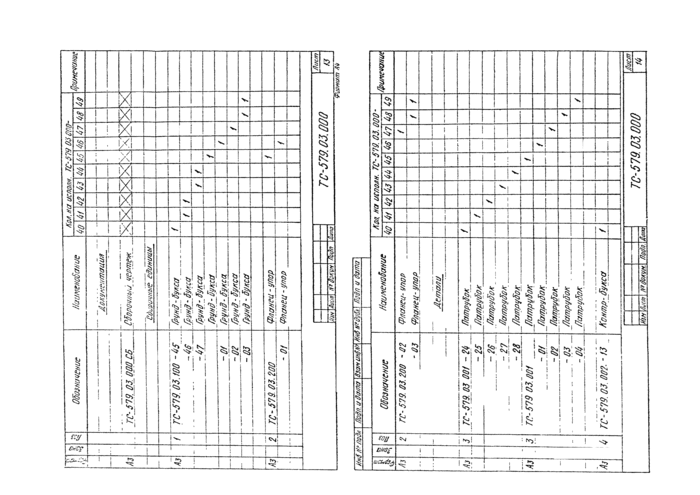 Формат Зона Поз. Обозначение Наименование Кол. на исполн. ТС-579.03.000- Примечание
40 41 42 43 44 45 46 47 48 49
Документация
А3 ТС-579.03.000 СБ Сборочный чертеж X X X X X X X X X X
Сборочные единицы
А3 1 ТС-579.03.100 - 45 Грунд-букса 1
- 46 Грунд-букса 1 1
- 47 Грунд-букса 1 1
Грунд-букса 1
- 01 Грунд-букса 1
- 02 Грунд-букса 1
- 03 Грунд-букса 1 1
А3 2 ТС-579.03.200 Фланец-упор 1
- 01 Фланец-упор 1
Изм Лист № докум. Подп. Дата
ТС-579.03.000
Лист
13
Формат А4
Инв № подл Подп. и дата Взам инв № Инв № дубл Подп. и дата
Формат Зона Поз. Обозначение Наименование Кол. на исполн. ТС-579.03.000- Примечание
40 41 42 43 44 45 46 47 48 49
А3 2 ТС-579.03.200 - 02 Фланец-упор 1
- 03 Фланец-упор 1 1
Детали
А3 3 ТС-579.03.001 - 24 Патрубок 1
- 25 Патрубок 1
- 26 Патрубок 1
- 27 Патрубок 1
- 28 Патрубок 1
А3 3 ТС-579.03.001 Патрубок 1
- 01 Патрубок 1
- 02 Патрубок 1
- 03 Патрубок 1
- 04 Патрубок 1
А3 4 ТС-579.03.002 - 13 Контр-букса 1
Изм Лист № докум. Подп. Дата
ТС-579.03.000
Лист
14